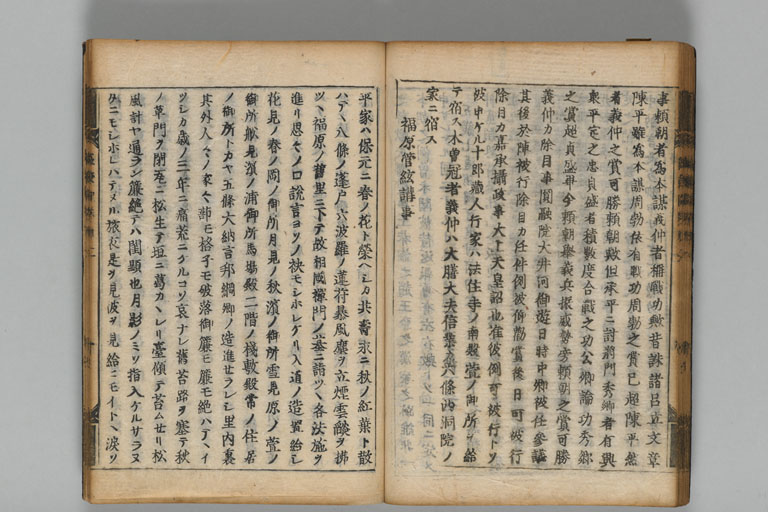 事頼朝者為本謀義仲者稱戰功歟昔誅諸呂立文章
陳平雖為本謀周勃依有戰功周勃之賞已超陳平然
者義仲之賞可勝頼朝歟但承平ニ討將門秀郷者有興
衆平定之忠貞盛者積數度合戰之功公卿論功秀郷
之賞超貞盛畢今頼朝擧義兵振威勢旁頼朝之賞可勝
義仲カ除目事圓融院大井河御遊日時中卿被任參議
其後於陣被行除目カ任件例被併勸賞後日可被行
除目カ嘉承攝政事大ト天皇詔也彼例可被行トソ
彼申ケル十郎藏人行家ハ法住寺ノ南殿萱ノ御所ニ
テ宿ス木曽冠者義仲ハ大膳大夫信業六條西洞院ノ
家ニ宿ス
福原管絃講事
平家ハ保元ニ春ノ花ト榮ヘシカ共壽永ニ秋ノ紅葉ト散
ハテヽ八條ノ蓬戸六波羅ノ蓮府暴風塵ヲ立煙雲餤ヲ拂
ツヽ福原ノ舊里ニ下テ故相國禪門ノ墓ニ詣ツヽ各法施ヲ
進リ思々ノ口説言ヨソノ袂モシホレケリ入道ノ造置給シ
花見ノ春ノ岡ノ御所月見ノ秋濱ノ御所雪見原ノ萱ノ
御所舩見濱ノ浦御所馬場殿二階ノ棧敷殿常ノ住居
ノ御所トカヤ五條大納言邦綱卿ノ造進セラレシ里内裏
其外人々ノ家々蔀モ格子モ破落御簾モ簾モ絶ハテヽイ
ツシカ歳ノ三年ニ痛荒ニケルコソ哀ナレ舊苔路ヲ塞テ秋
ノ草門ヲ閉瓦ニ松生テ垣ニ葛カヽレリ臺傾テ苔ムセリ松
風計ヤ通ラン簾絶テハ閨顯也月影ノミソ指入ケルサラヌ
タニモシホレハテヌル旅衣是ヲ見彼ヲ見給ニモイトヽ涙ソ